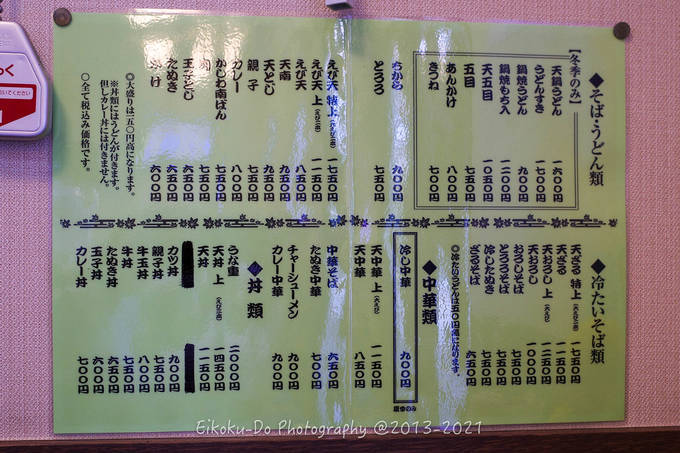 ◆そば・うどん類
【冬季のみ】
天鍋うどん 一六〇〇円
うどんすき 一七〇〇円
鍋焼うどん 九〇〇円
鍋焼もち入 一二〇〇円
天五目 一一五〇円
五目 七五〇円
あんかけ 八〇〇円
きつね 七〇〇円
ちから 九〇〇円
とろろ 七五〇円
えび天 特上 一七五〇円
えび天 上 一一五〇円
えび天 八五〇円
天南 九五〇円
天とじ 九五〇円
親子 七五〇円
カレー 八〇〇円
かしわ南ばん 七五〇円
七五〇円
玉子とじ 六五〇円
たぬき 六五〇円
かけ 六〇〇円
◎大盛りは一五〇円高になります。
※丼類にはうどんが付きます。
但しカレー丼には付きません。
○全て税込み価格です。
◆冷たいそば類
天ざる 特上 一七五〇円
天ざる
天おろし 上
天おろし 一〇〇〇円
おろしそば 七五〇円
とろろそば 七五〇円
冷したぬき 七五〇円
ざるそば 六五〇円
◎冷たいうどんは五〇円高になります。
◆中華類
冷し中華 九〇〇円
夏季のみ
天中華 上 一一五〇円
天中華 八五〇円
中華そば 六五〇円
たぬき中華 七〇〇円
チャーシューメン 九〇〇円
カレー中華 九〇〇円
◆丼類
うな重 二〇〇〇円
天丼 上 一四五〇円
天丼 一一五〇円
カツ丼 九〇〇円
親子丼 七五〇円
牛玉丼 八〇〇円
牛丼 七五〇円
たぬき丼 六五〇円
玉子丼 六〇〇円
カレー丼 七五〇円
Eikoku-Do Photography @2013-2021